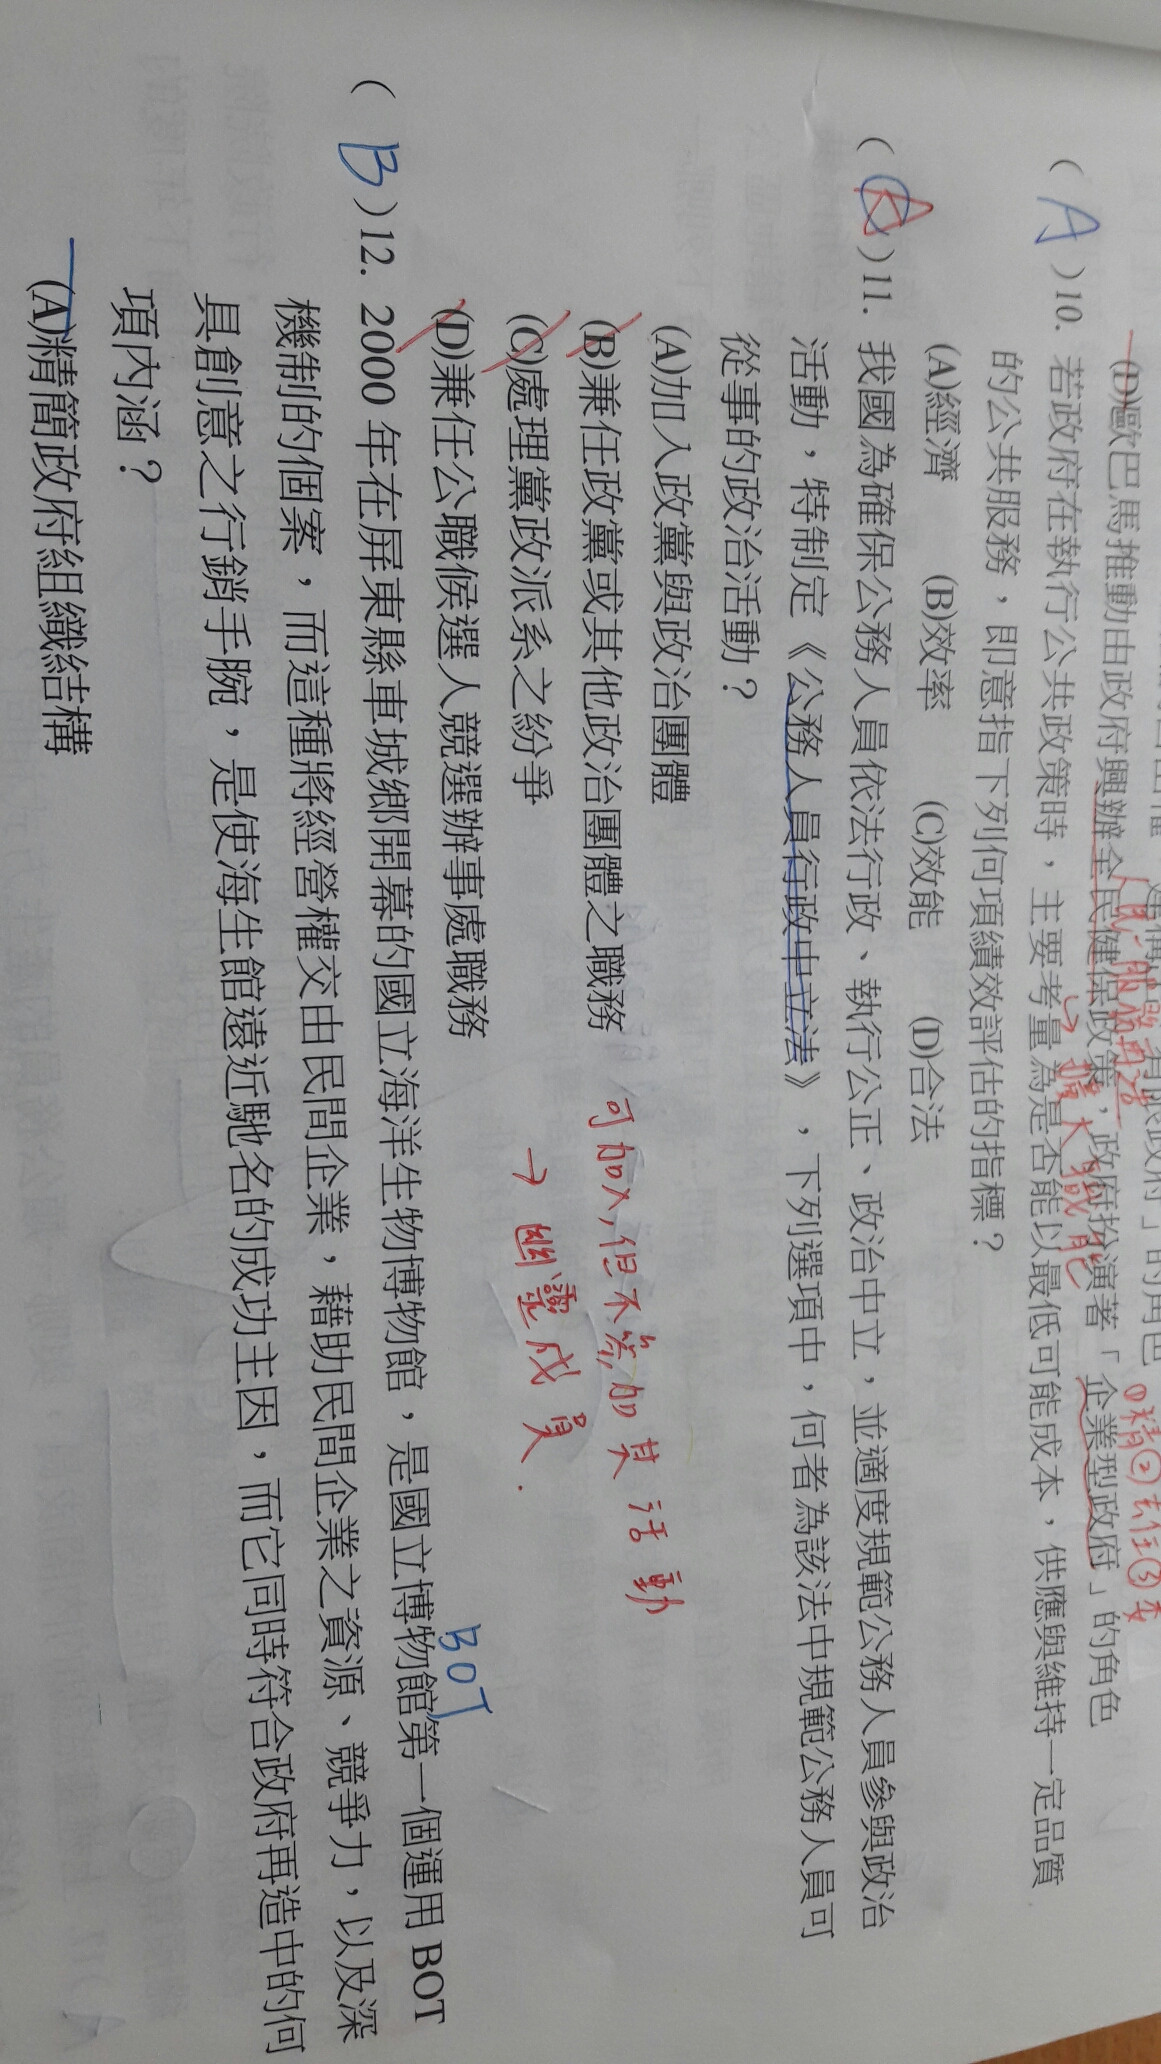 (D)歐巴馬推動由政府興辦全民健保政策，政府扮演著「企業型政府」的角色
(A)10. 若政府在執行公共政策時，主要考量為是否能以最低可能成本，供應與維持一定品質
的公共服務，即意指下列何項績效評估的指標？
(A)經濟 (B)效率 (C)效能 (D)合法
擴大職能
(A)11. 我國為確保公務人員依法行政、執行公正、政治中立，並適度規範公務人員參與政治
活動，特制定《公務人員行政中立法》，下列選項中，何者為該法中規範公務人員可
從事的政治活動？
(A)加入政黨與政治團體
(B)兼任政黨或其他政治團體之職務
可加入，但不參加其活動
(C)處理黨政派系之紛爭
→幽靈成員.
(D)兼任公職候選人競選辦事處職務
BOT
(B)12. 2000 年在屏東縣車城鄉開幕的國立海洋生物博物館，是國立博物館第一個運用 BOT
機制的個案，而這種將經營權交由民間企業，藉助民間企業之資源、競爭力，以及深
具創意之行銷手腕，是使海生館遠近馳名的成功主因，而它同時符合政府再造中的何
項內涵？
(A)精簡政府組織結構